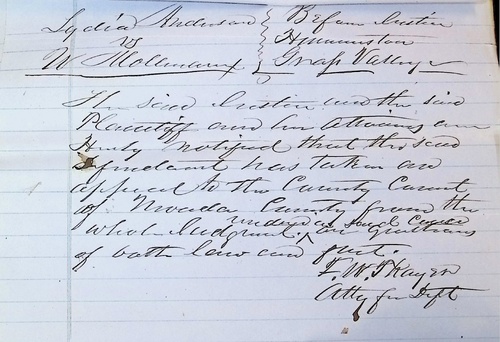 Lydia Anderson } Before Justice
vs } Humiston
W. McClenahan } Grass Valley
The said Justice and the said
Plaintiff and her attorneys are
Hereby Notified that the said
Defendant has taken an
appeal to the County Court
of Nevada County from the
whole Judgment rendered in said Cause on questions
of both law and fact.
Atty for Deft